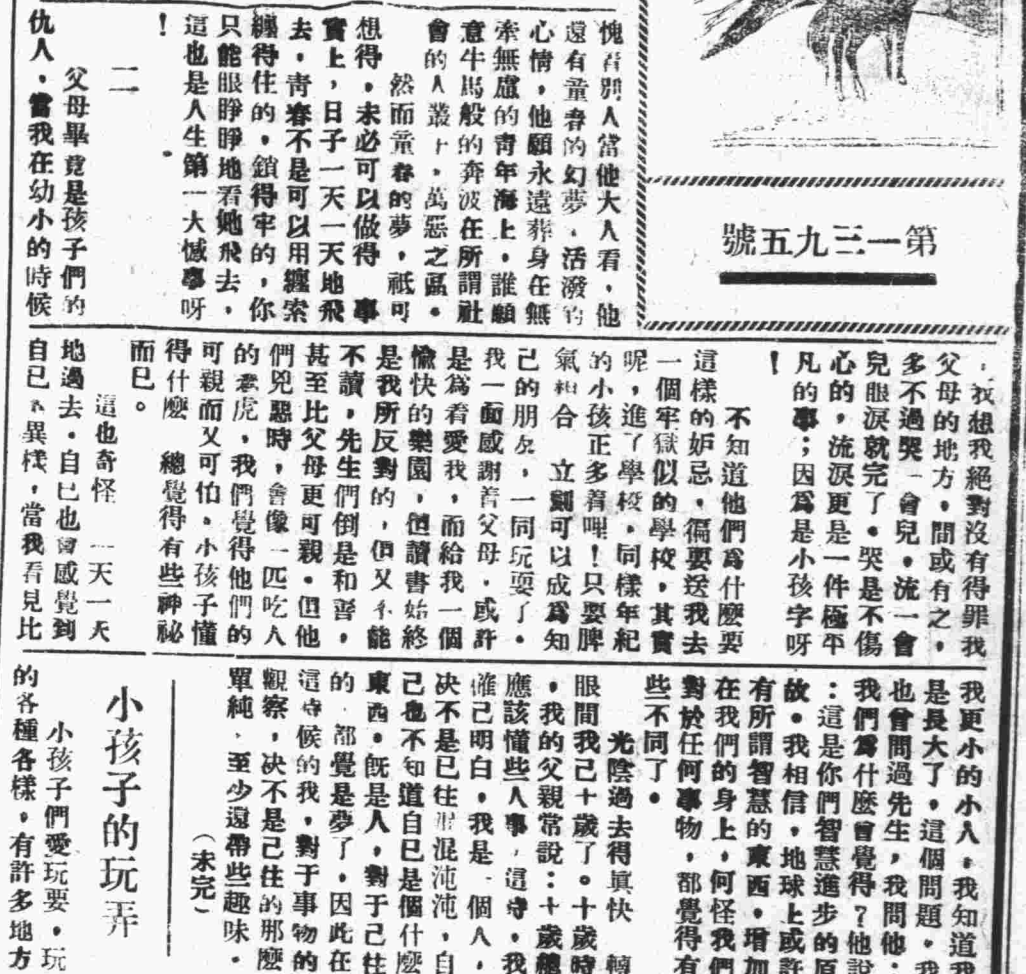 第一三九五號
愧看別人當他大人看，他
還有童春的幻夢，活潑的
心情，他願永遠葬身在無
牽無慮的青年海上，誰願
意牛馬般的奔波在所謂社
會的人叢中，萬惡之區。
然而童春的夢，祇可
想得，未必可以做得　事
實上，日子一天一天地飛
去，青春不是可以用纏索
纏得住的，鎖得牢的，你
只能眼睜睜地看她飛去，
這也是人生第一大憾事呀
！
二
父母畢竟是孩子們的
仇人，當我在幼小的時候
，我想我絕對沒有得罪我
父母的地方，間或有之，
多不過哭一會兒，流一會
兒眼淚就完了。哭是不傷
心的，流淚更是一件極平
凡的事；因爲是小孩字呀
！
不知道他們爲什麼要
這樣的妒忌，偏要送我去
一個牢獄似的學校，其實
呢，進了學校，同樣年紀
的小孩正多着哩！只要脾
氣和合　立刻可以成爲知
己的朋友，一同玩耍了。
我一面感謝着父母，或許
是爲着愛我，而給我一個
愉快的樂園，但讀書始終
是我所反對的，但又不能
不讀，先生們倒是和善，
甚至比父母更可親。但他
們兇惡時，會像一匹吃人
的老虎，我們覺得他們的
可親而又可怕。小孩子懂
得什麼　總覺得有些神祕
而已。
這也奇怪　一天一天
地過去，自己也會感覺到
自己　異樣，當我看見比
我更小的小人，我知道我
是長大了，這個問題，我
也曾問過先生，我問他，
我們爲什麼會覺得？他說
：這是你們智慧進步的原
故。我相信，地球上或許
有所謂智慧的東西，增加
在我們的身上，何怪我們
對於任何事物，都覺得有
些不同了。
光陰過去得真快　轉
眼間我已十歲了。十歲時
，我的父親常說：十歲總
應該懂些人事，這時，我
確已明白，我是一個人，
决不是已往　混沌沌，自
己也不知道自已是個什麼
東西。既是人，對于已往
的　都覺是夢了，因此在
這時候的我，對于事物的
觀察，决不是已往的那麼
單純　至少還帶些趣味。
（未完）
小孩子的玩弄
小孩子們愛玩耍，玩
的各種各樣，有許多地方